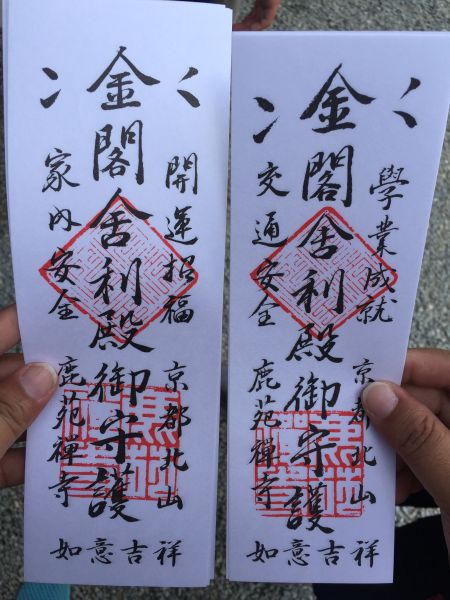 開運招福 京都北山
金閣舎利殿御守護
家内安全 鹿苑禪寺
如意吉祥
學業成就 京都北山
金閣舎利殿御守護
交通安全 鹿苑禪寺
如意吉祥